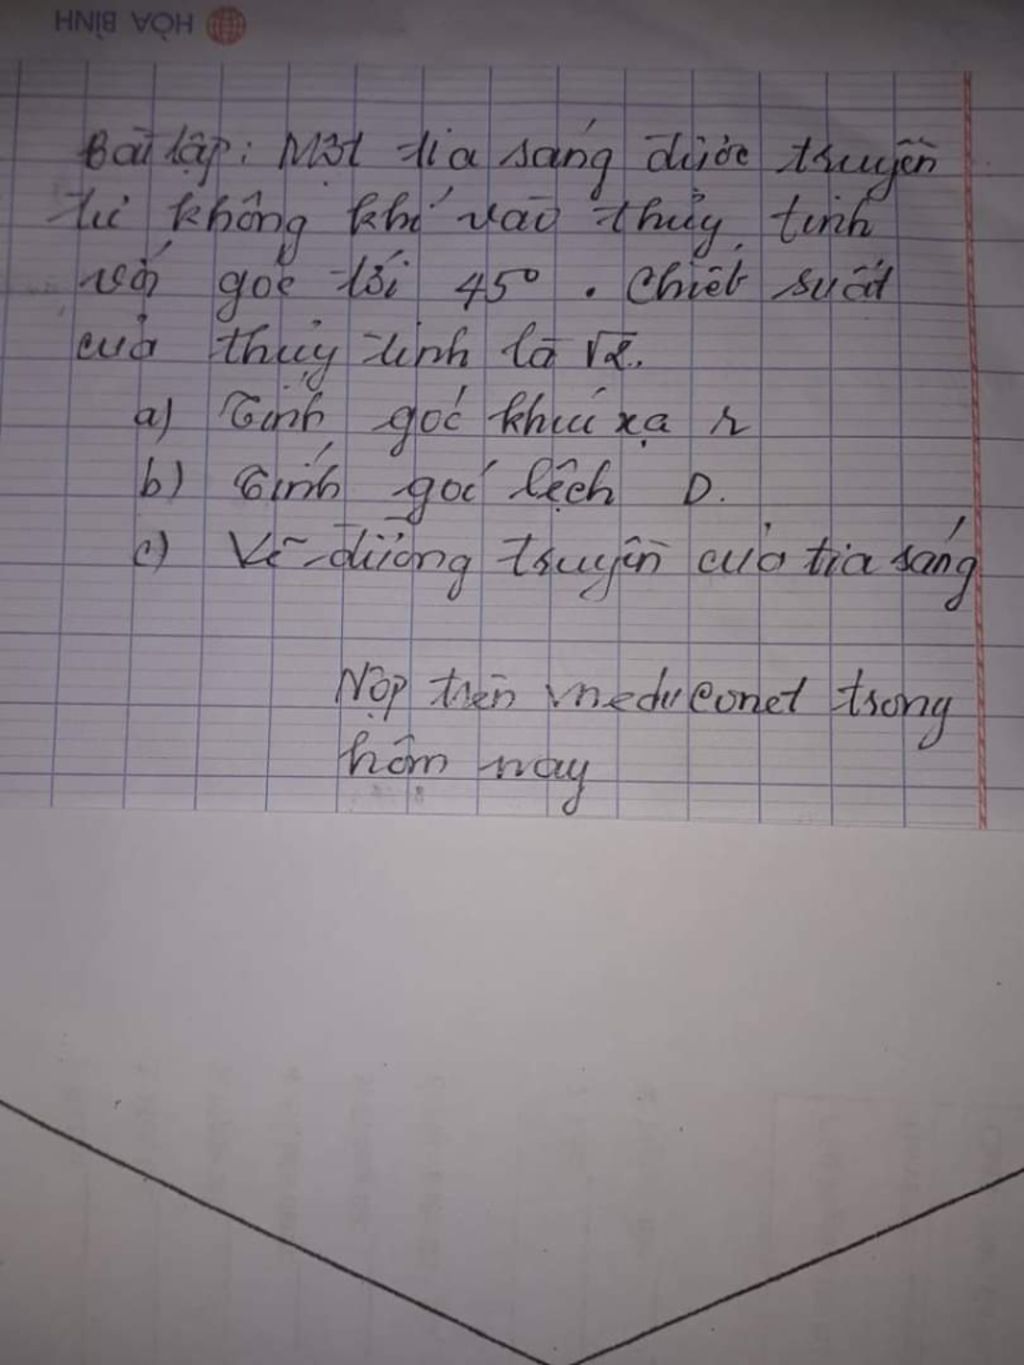 HÒA BÌNH
Bài tập: Một tia sáng được truyền
từ không khí vào thủy tinh
với góc tới 45°. Chiết suất
của thủy tinh là √2.
a) Tính góc khúc xạ r
b) Tính góc lệch D.
c) Vẽ đường truyền của tia sáng
Nộp trên vneduconet trong
hôm nay